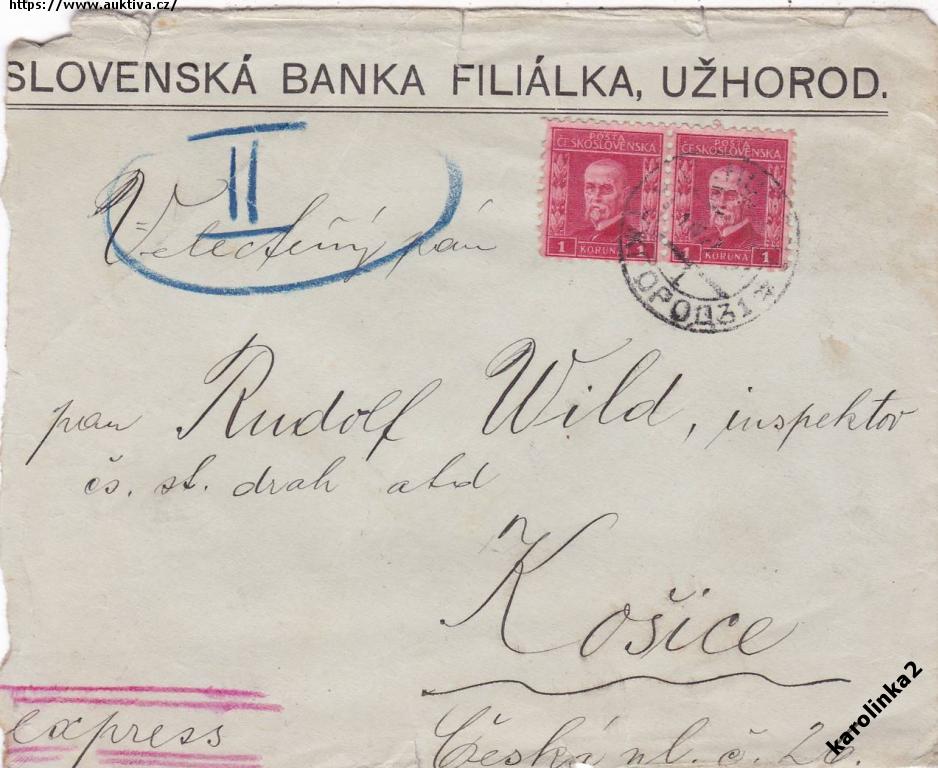 https://www.auktiva.cz/
SLOVENSKÁ BANKA FILIÁLKA, UŽHOROD.
II
POŠTA ČESKOSLOVENSKÁ
1 KORUNA
POŠTA ČESKOSLOVENSKÁ
1 KORUNA 1
ОРОД 31
Velectěný pán
pan Rudolf Wild, inspektor
čs. st. drah atd
Košice
express
Česká ul. č.
karolinka2